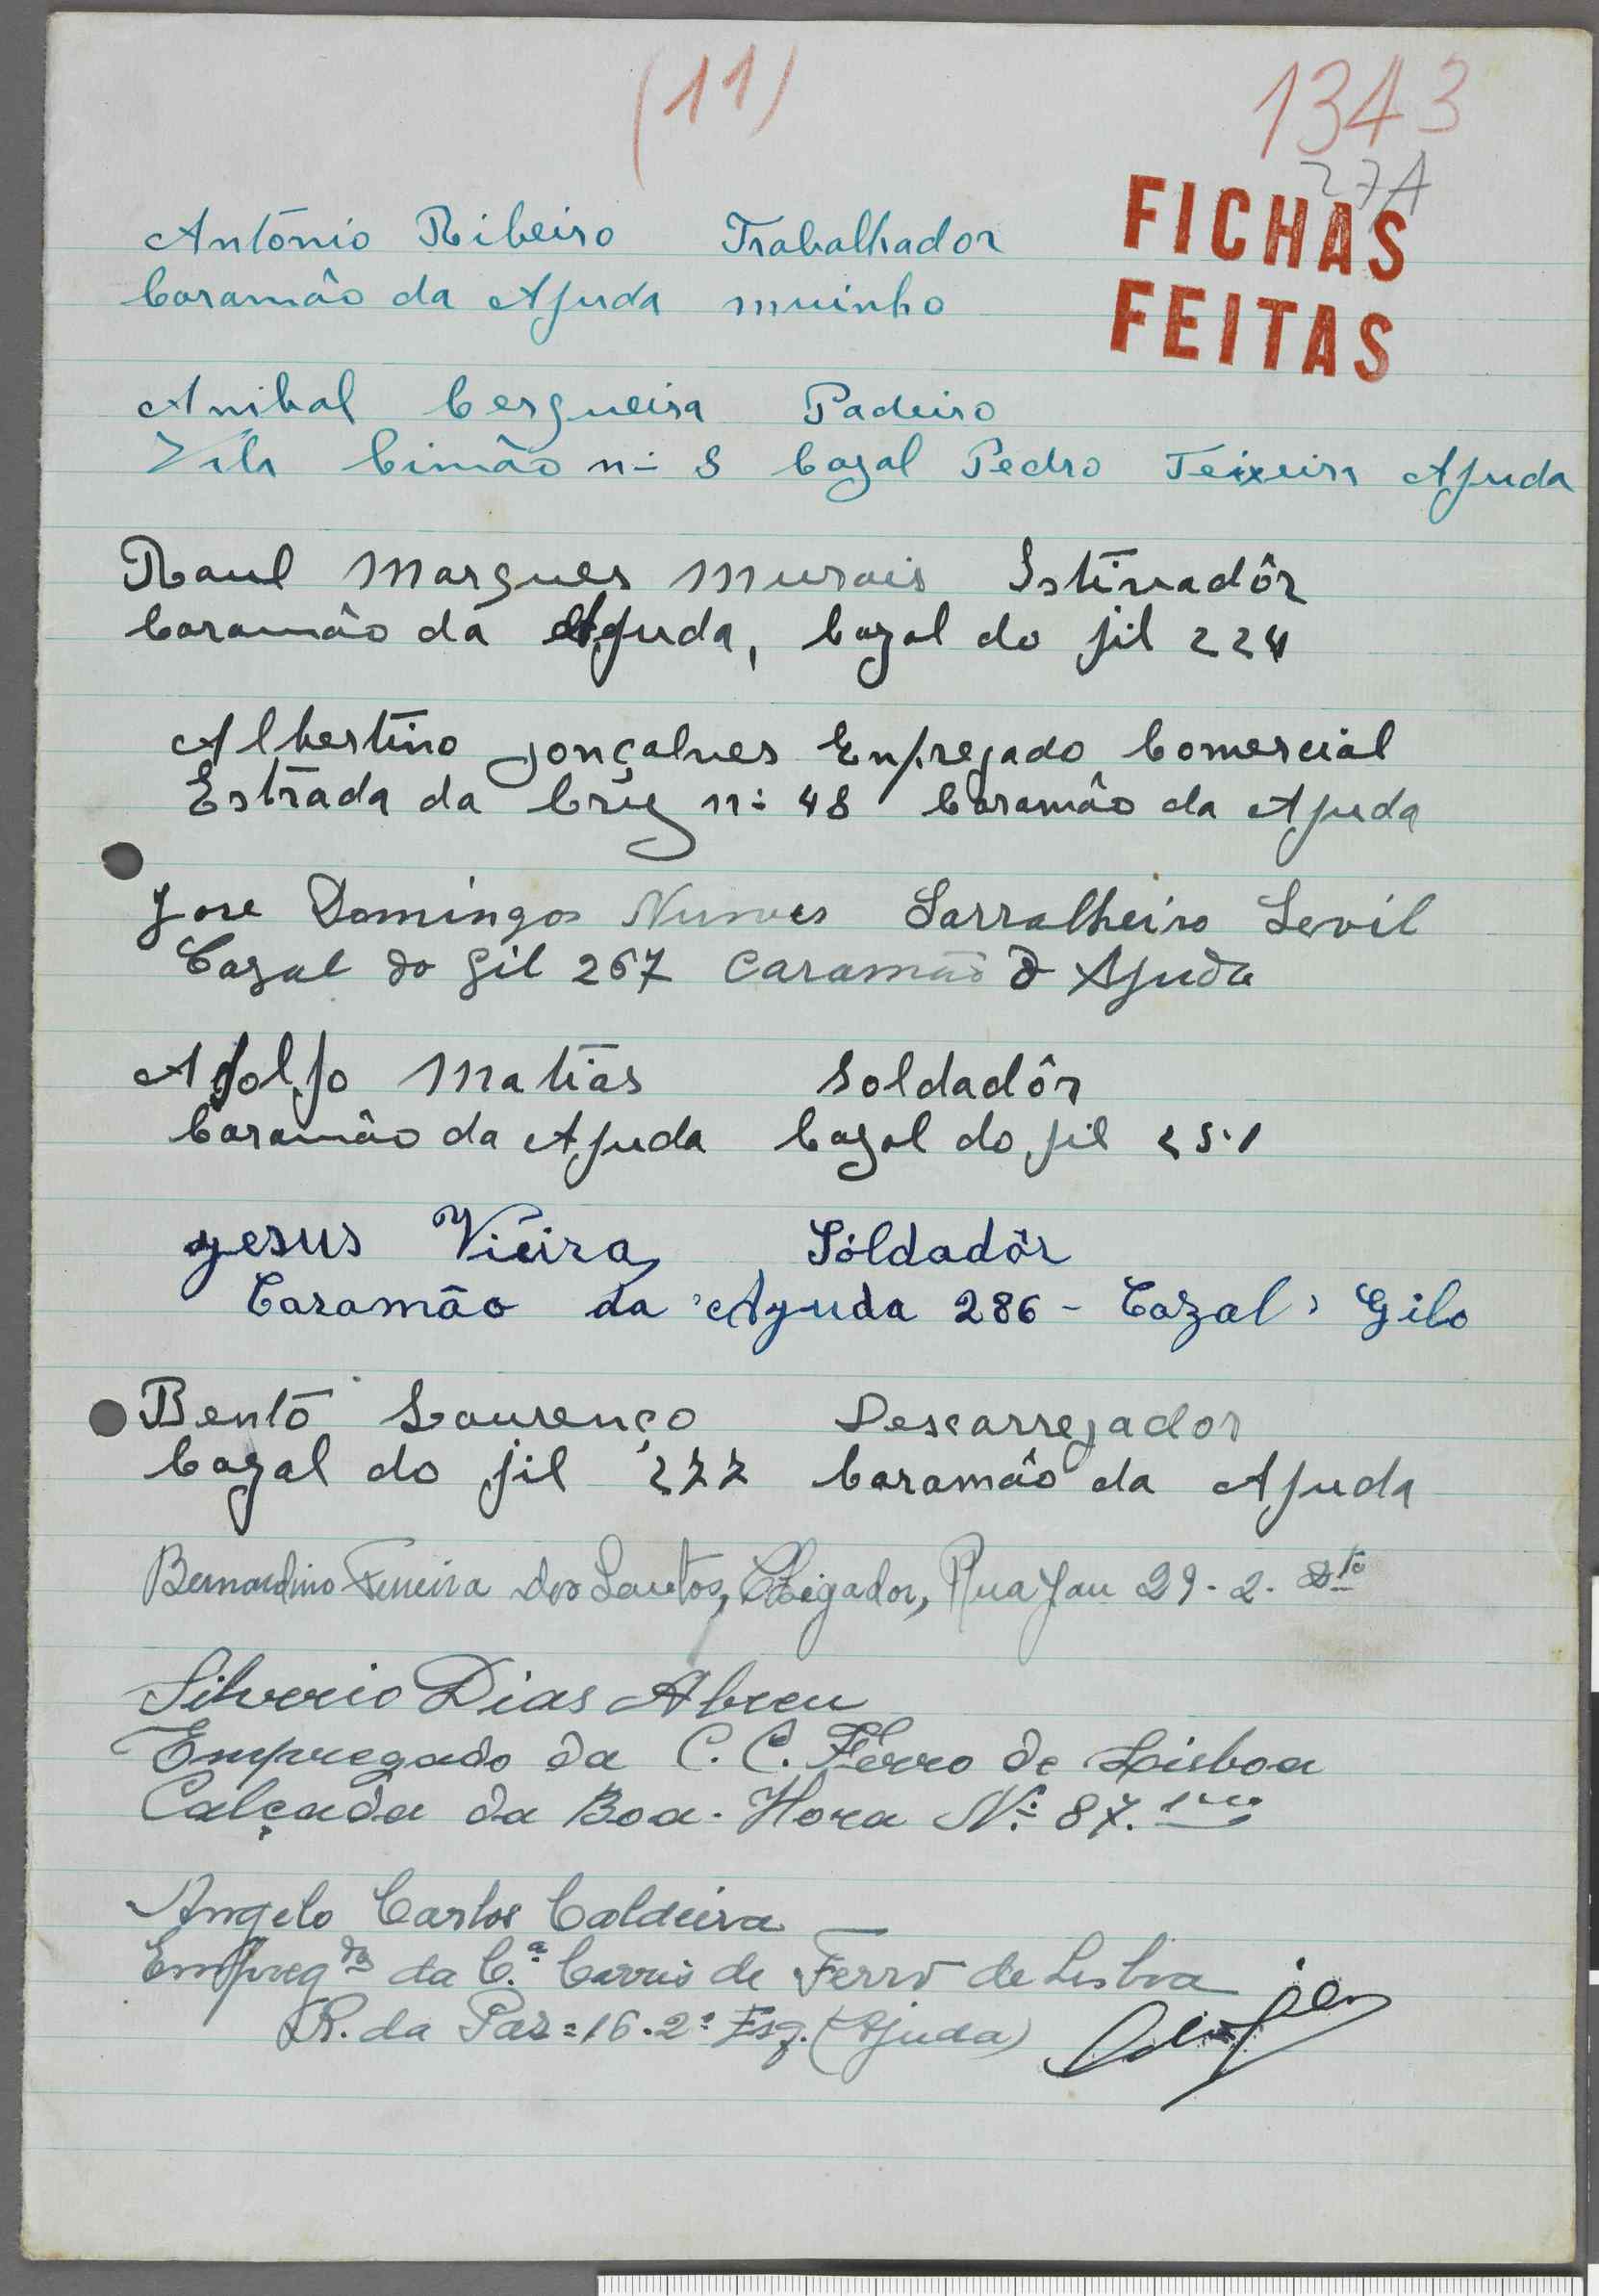 (11)
1343
27A
FICHAS
FEITAS
António Ribeiro Trabalhador
Caramão da Ajuda muinho
Anibal Cergueira Padeiro
Vila Cimão nº 8 Cazal Pedro Teixeira Ajuda
Raul Margues Murais Istivadôr
Caramão da Ajuda, Cazal do jil 224
Albertino gonçalves Enpregado Comercial
Estrada da Cruz nº 48 Caramão da Ajuda
Jose Domingos Nunes Sarralheiro Sevil
Cazal do Gil 267 Caramão d Ajuda
Adolfo Matias Soldadôr
Caramão da Ajuda Cazal do jil 251
Jesus Vieira Sóldadôr
Caramão da Ajuda 286 - Cazal, Gilo
Bento Lourenço Descarregador
Cazal do jil 277 Caramão da Ajuda
Bernardino Ferreira dos Santos, Chegador, Rua Jau 29-2- Dto
Silverio Dias Abreu
Empregado da C. C. Ferro de Lisboa
Calçada da Boa-Hora Nº 87.
Angelo Carlos Caldeira
Empregdo da C.ª Carris de Ferro de Lisboa
R. da Paz = 16-2º Esq. (Ajuda)